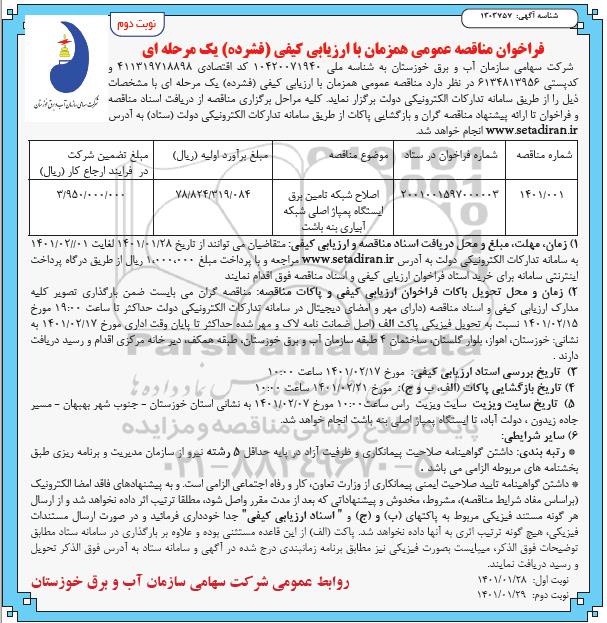 شناسه آگهی: ۱۳۰۳۷۵۷
نوبت دوم
فراخوان مناقصه عمومی همزمان با ارزیابی کیفی (فشرده) یک مرحله ای
شرکت سهامی سازمان آب و برق خوزستان
شرکت سهامی سازمان آب و برق خوزستان به شناسه ملی ۱۰۴۲۰۰۷۱۹۴۰ کد اقتصادی ۴۱۱۳۱۹۷۱۸۸۹۸ و
کدپستی ۶۱۳۴۸۱۳۹۵۶ در نظر دارد مناقصه عمومی همزمان با ارزیابی کیفی (فشرده) یک مرحله ای با مشخصات
ذیل را از طریق سامانه تدارکات الکترونیکی دولت برگزار نماید. کلیه مراحل برگزاری مناقصه از دریافت اسناد مناقصه
و فراخوان تا ارائه پیشنهاد مناقصه گران و بازگشایی پاکات از طریق سامانه تدارکات الکترونیکی دولت (ستاد) به آدرس
www.setadiran.ir انجام خواهد شد.
شماره مناقصه
شماره فراخوان در ستاد
موضوع مناقصه
مبلغ برآورد اولیه (ریال)
مبلغ تضمین شرکت
در فرایند ارجاع کار (ریال)
۱۴۰۱/۰۰۱
۲۰۰۱۰۰۱۵۹۷۰۰۰۰۰۳
اصلاح شبکه تامین برق
ایستگاه پمپاژ اصلی شبکه
آبیاری بنه باشت
۷۸/۸۲۴/۳۱۹/۰۸۴
۳/۹۵۰/۰۰۰/۰۰۰
۱) زمان، مهلت، مبلغ و محل دریافت اسناد مناقصه و ارزیابی کیفی: متقاضیان می توانند از تاریخ ۱۴۰۱/۰۱/۲۸ لغایت ۱۴۰۱/۰۲/۰۱
به سامانه تدارکات الکترونیکی دولت به آدرس www.setadiran.ir مراجعه و با پرداخت مبلغ ۱،۰۰۰،۰۰۰ ریال از طریق درگاه پرداخت
اینترنتی سامانه برای خرید اسناد فراخوان ارزیابی کیفی و اسناد مناقصه فوق اقدام نمایند
۲) زمان و محل تحویل پاکات فراخوان ارزیابی کیفی و پاکات مناقصه: مناقصه گران می بایست ضمن بارگذاری تصویر کلیه
مدارک ارزیابی کیفی و اسناد مناقصه (دارای مهر و امضای دیجیتال در سامانه تدارکات الکترونیکی دولت حداکثر تا ساعت ۱۹:۰۰ مورخ
۱۴۰۱/۰۲/۱۵ نسبت به تحویل فیزیکی پاکت الف (اصل ضمانت نامه لاک و مهر شده) حداکثر تا پایان وقت اداری مورخ ۱۴۰۱/۰۲/۱۷ به
نشانی: خوزستان، اهواز، بلوار گلستان، ساختمان ۴ طبقه سازمان آب و برق خوزستان، طبقه همکف، دبیر خانه مرکزی اقدام و رسید دریافت
دارند .
۳) تاریخ بررسی اسناد ارزیابی کیفی: مورخ ۱۴۰۱/۰۲/۱۷ ساعت ۱۰:۰۰
۴) تاریخ بازگشایی پاکات (الف، ب و ج): مورخ ۱۴۰۱/۰۲/۲۱ ساعت ۱۰:۰۰
۵) تاریخ سایت ویزیت سایت ویزیت راس ساعت ۱۰:۰۰ مورخ ۱۴۰۱/۰۲/۰۷ به نشانی استان خوزستان - جنوب شهر بهبهان - مسیر
جاده زیدون ، دولت آباد، تا ایستگاه پمپاژ اصلی بنه باشت انجام خواهد شد.
۶) سایر شرایطی:
* رتبه بندی: داشتن گواهینامه صلاحیت پیمانکاری و ظرفیت آزاد در پایه حداقل ۵ رشته نیرو از سازمان مدیریت و برنامه ریزی طبق
بخشنامه های مربوطه الزامی می باشد .
* داشتن گواهینامه تایید صلاحیت ایمنی پیمانکاری از وزارت تعاون، کار و رفاه اجتماعی الزامی است. و به پیشنهادهای فاقد امضا الکترونیک
(براساس مفاد شرایط مناقصه)، مشروط، مخدوش و پیشنهاداتی که بعد از مدت مقرر واصل شود، مطلقا ترتیب اثر داده نخواهد شد و از ارسال
هر گونه مستند فیزیکی مربوط به پاکتهای (ب) و (ج) و " اسناد ارزیابی کیفی" جدا خودداری فرمائید و در صورت ارسال مستندات
فیزیکی، هیچ گونه ترتیب اثری به آنها داده نخواهد شد. پاکت (الف) از این قاعده مستثنی بوده و علاوه بر بارگذاری در سامانه ستاد مطابق
توضیحات فوق الذکر، میبایست بصورت فیزیکی نیز مطابق برنامه زمانبندی درج شده در آگهی و سامانه ستاد به آدرس فوق الذکر تحویل
و رسید دریافت نمایند.
نوبت اول: ۱۴۰۱/۰۱/۲۸
نوبت دوم: ۱۴۰۱/۰۱/۲۹
روابط عمومی شرکت سهامی سازمان آب و برق خوزستان
ParsNamadData
پایگاه اطلاع رسانی مناقصه و مزایده
۰۲۱-۸۸۳۴۹۶۷۰-۵